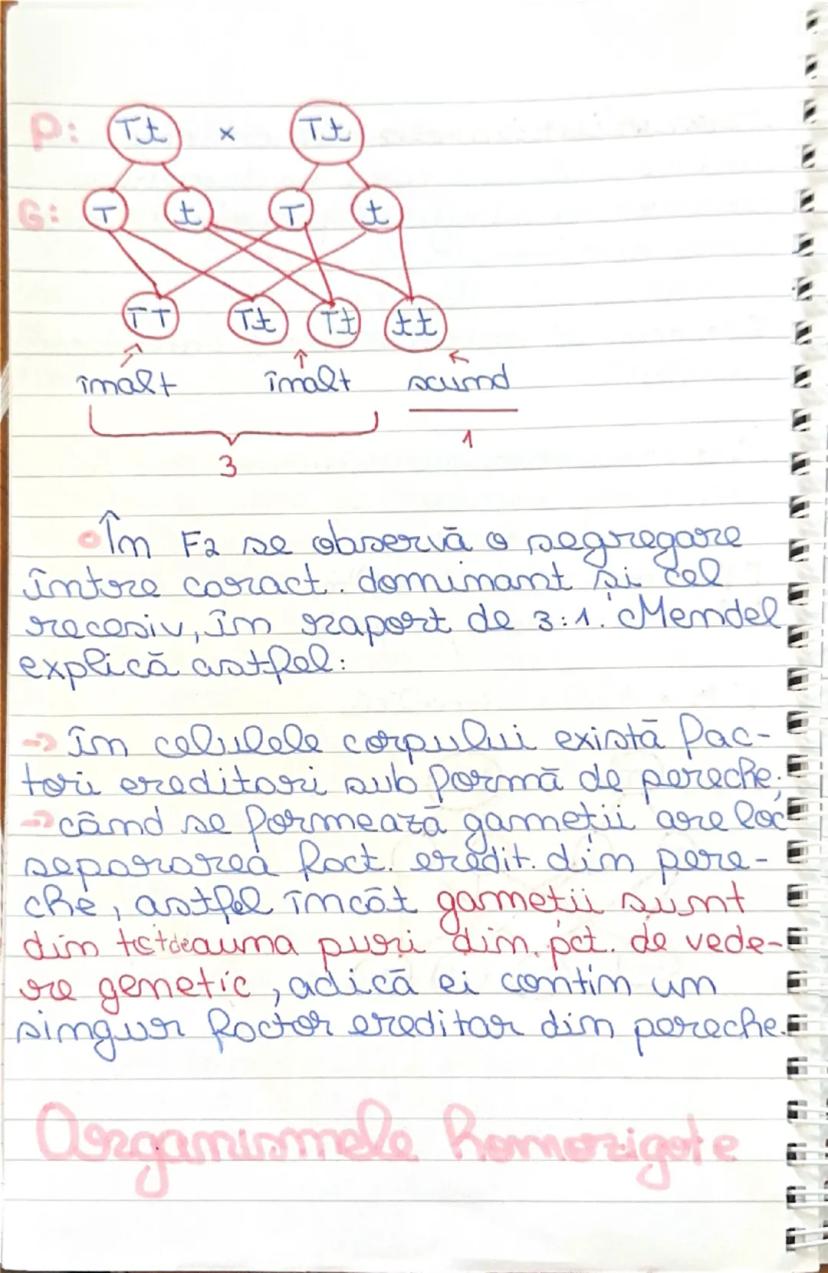 P: Tt x Tt
G: T t T t
TT Tt Tt tt
înalt înalt scund
3 1
În F2 se observă o segregare
între caract. dominant și cel
recesiv, în raport de 3:1. Mendel
explică astfel:
→ în celulele corpului există fac-
tori ereditari sub formă de pereche;
→ când se formează gameții are loc
separarea fact. eredit. din pere-
che, astfel încât gameții sunt
din totdeauna puri din pct. de vede-
re genetic, adică ei conțin un
singur factor ereditar din pereche.
Organismele homozigote